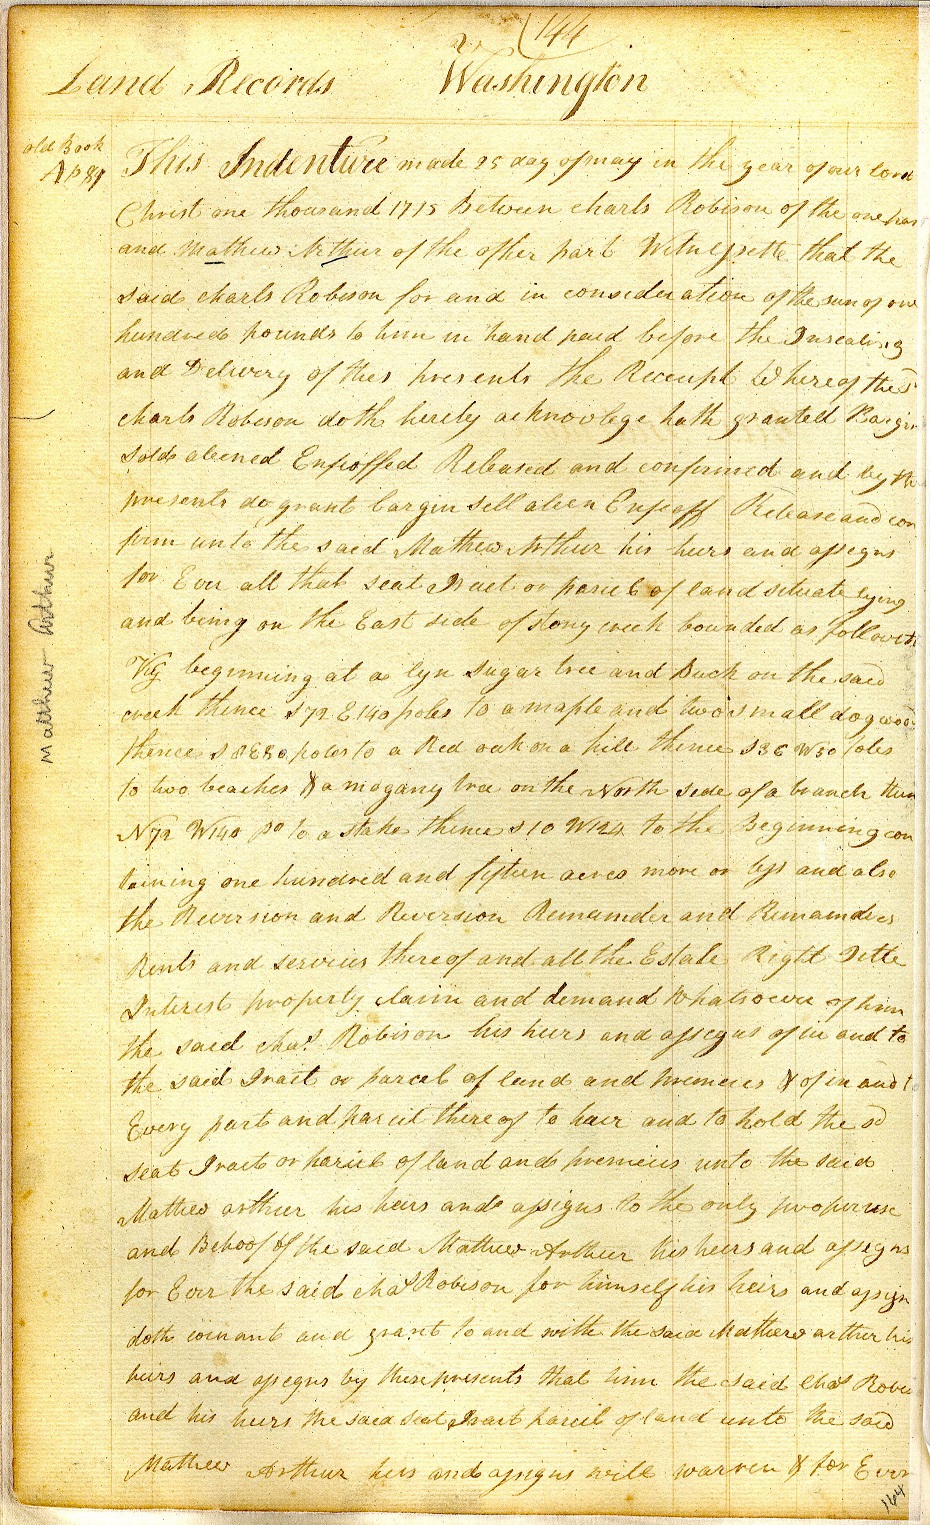 (144
Land Records Washington
old Book
A p 89
This Indenture made 25 day of may in the year of our lord
Christ one thousand 1775 Between charls Robison of the one par
and Mathew Arthur of the other part Witnessette that the
said charls Robison for and in consideration of the sum of one
hundred pounds to him in hand paid before the Insealing
and Delivery of thes presents the Receipt Whereof the sd
charls Robison doth herely acknowlege hath granted Bargin
sold aliened Enfeoffed Released and confirmed and by the
presents do grant bargin sell alien Enfeoff Release and con
firm unto the said Mathew Arthur his heirs and assegns
for Ever all that seat Tract or parcel of land situate lying
and being on the East side of stony creek bounded as followeth
Viz beginning at a lyn sugar tree and Buck on the said
creek thence S72 E140 poles to a maple and two small dogwood
thence S 18 E80 poles to a Red oak on a hill thence S36 W50 Poles
to two beaches & a mogany tree on the North side of a branch then
N72 W140 po to a stake thence S10 W124 to the Beginning con
taining one hundred and fifteen acres more or less and also
the Reversion and Reversion Remainder and Remainders
Rents and services thereof and all the Estate Right Tittle
Interest property claim and demand Whatsoever of him
the said chas. Robison his heirs and assegns of in and to
the said Tract or parcel of land and premeces & of in and to
Every part and parcil thereof to have and to hold the sd
seat Tract or parcel of land and premeces unto the said
Mathew arthur his heirs and assigns to the only proper use
and Behoof of the said Mathew Arthur his heirs and assegns
for Ever the said chas Robison for himself his heirs and assign
doth covinant and grant to and with the said Mathew arthur his
heirs and assegns by these presents that him the said chas Robis
and his heirs the said seat Tract parcil of land unto the said
Mathew Arthur heirs and assegns will warren & for Ever
Matthew Arthur
164